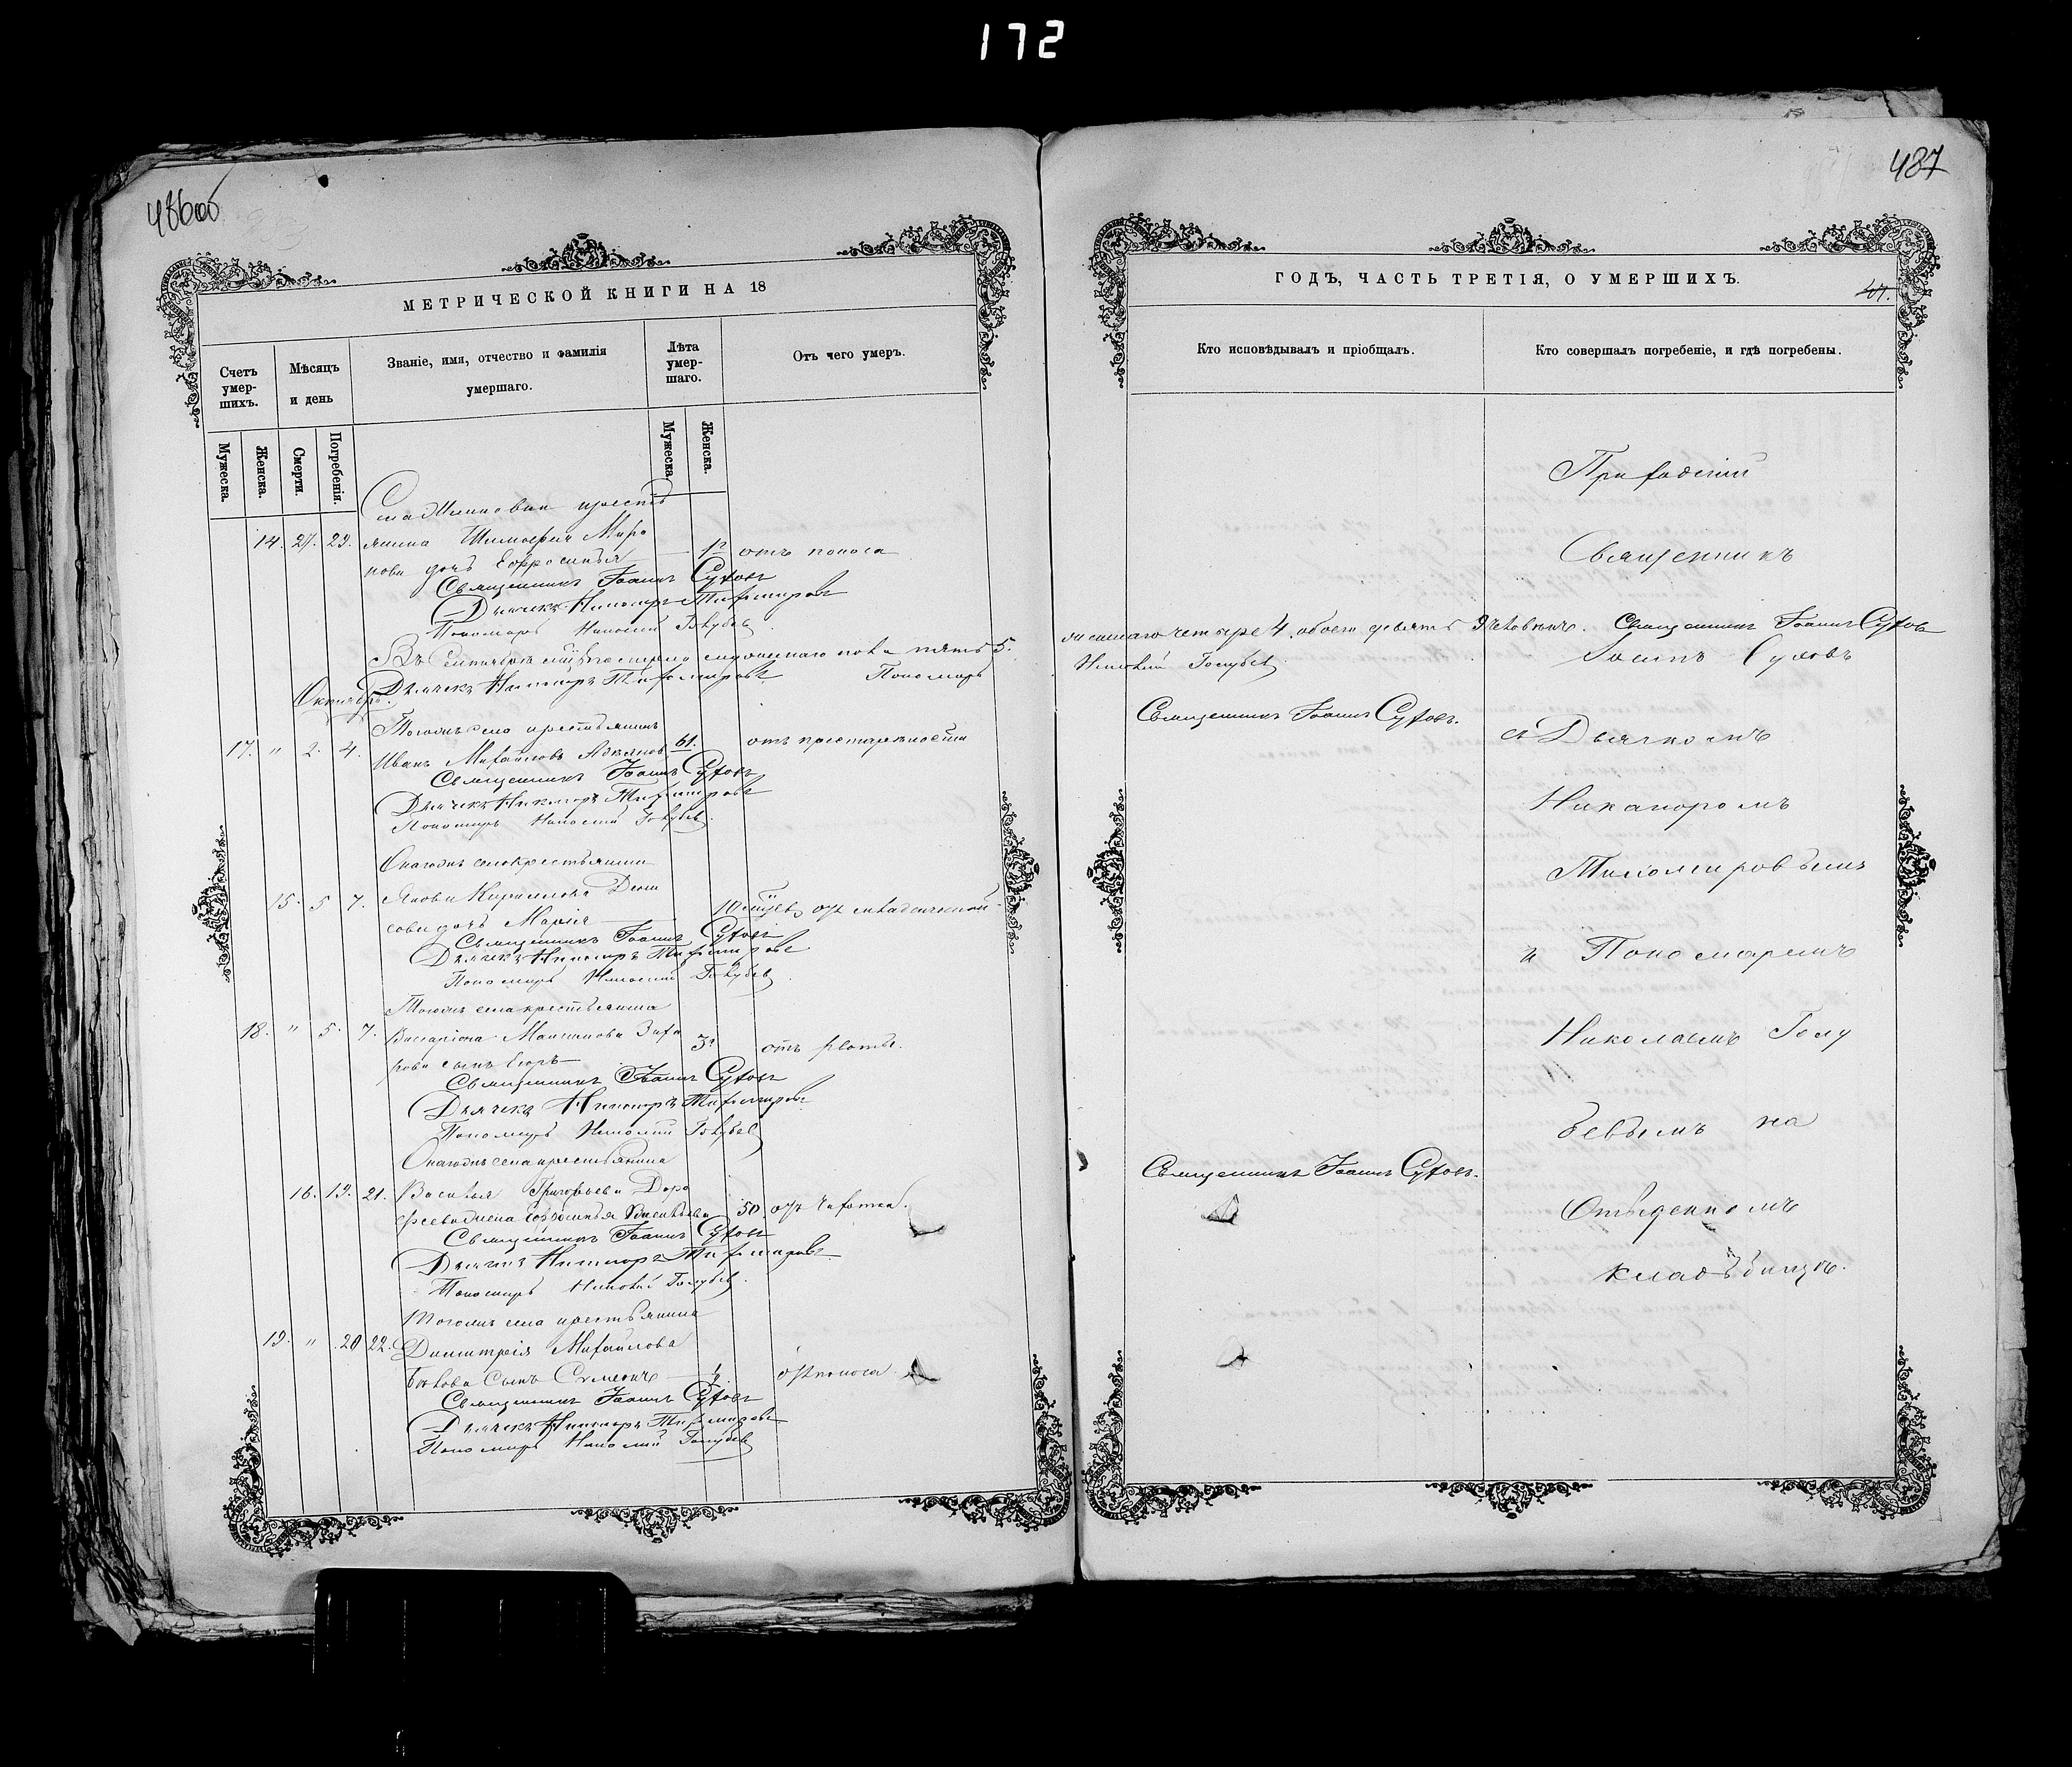 172
486об
МЕТРИЧЕСКОЙ КНИГИ НА 18
Счетъ умер-шихъ.
Мѣсяцъ и день
Званіе, имя, отчество и фамилія умершаго.
Лѣта умер-шаго.
Отъ чего умеръ.
Мужеска.
Женска.
Смерти.
Погребенія.
Мужеска
Женска.
14. 27. 29.
крестья
янина Миро
нова дочь Евфросинья 1г отъ поноса
Священникъ Іоаннъ Суховъ
Дьячекъ Никаноръ Тихомировъ
Пономарь Николай Голубевъ
Въ Сентябрѣ мужескаго пола пять 5.
Дьячекъ Никаноръ Тихомировъ Пономарь
Октябрь.
Тогожъ села крестьянинъ
17. " 2. 4. Иванъ Михайловъ 61. отъ престарелости
Священникъ Іоаннъ Суховъ
Дьячекъ Никаноръ Тихомировъ
Пономарь Николай Голубевъ
Онагожъ села крестьянина
15. 5 7. Якова Кириллова Дени
сова дочь Марія 10 отъ младенческой
Священникъ Іоаннъ Суховъ
Дьячекъ Никаноръ Тихомировъ
Пономарь Николай Голубевъ
Тогожъ села крестьянина
18. " 5. 7. Виссаріона Заха
рова сынъ Егоръ 3г отъ рвоты.
Священникъ Іоаннъ Суховъ
Дьячекъ Никаноръ Тихомировъ
Пономарь Николай Голубевъ
Онагожъ села крестьянина
16. 19. 21. Василья Григорьева Доро
феева жена Евфросинья 50 отъ чахотки.
Священникъ Іоаннъ Суховъ
Дьячекъ Никаноръ Тихомировъ
Пономарь Николай Голубевъ
Тогожъ села крестьянина
19. " 20 22. Димитрія Михайлова
сынъ Симеонъ отъ поноса
Священникъ Іоаннъ Суховъ
Дьячекъ Никаноръ Тихомировъ
Пономарь Николай Голубевъ
487
ГОДЪ, ЧАСТЬ ТРЕТІЯ, О УМЕРШИХЪ.
Кто исповѣдывалъ и пріобщалъ.
Кто совершалъ погребеніе, и гдѣ погребены.
Приходскій
Священникъ
женскаго четыре 4. обоего девять 9 человѣкъ. Священникъ Іоаннъ Суховъ
Николай Голубевъ
Іоаннъ Суховъ
Священникъ Іоаннъ Суховъ.
съ Дьячкомъ
Никаноромъ
Тихомировымъ
и Пономаремъ
Николаемъ Голу
бевымъ на
Священникъ Іоаннъ Суховъ.
Отведенномъ
кладбищѣ.